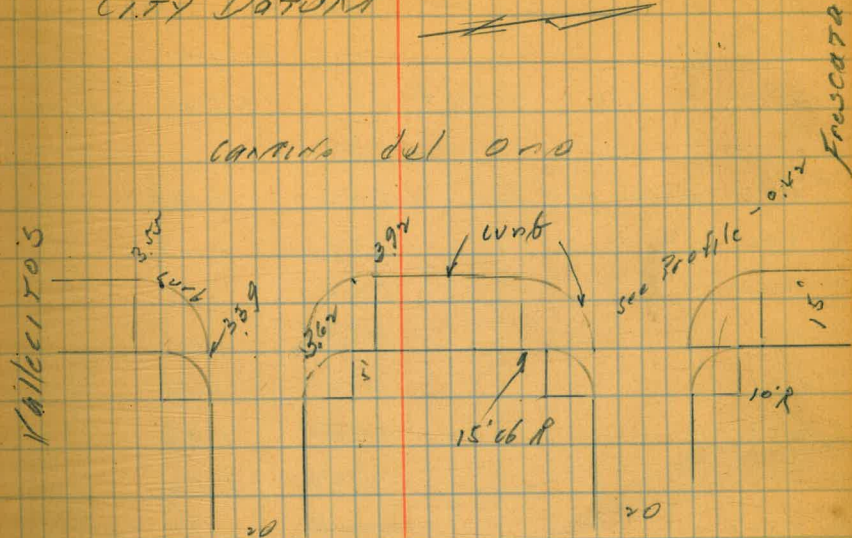 CITY DATUM
Frescata
Camino del Oro
Vallecitos
Curb
3.39
3.92
3.62
Curb
See Profile - 0.42
15'
5'
15' cb R
10' R
20
20